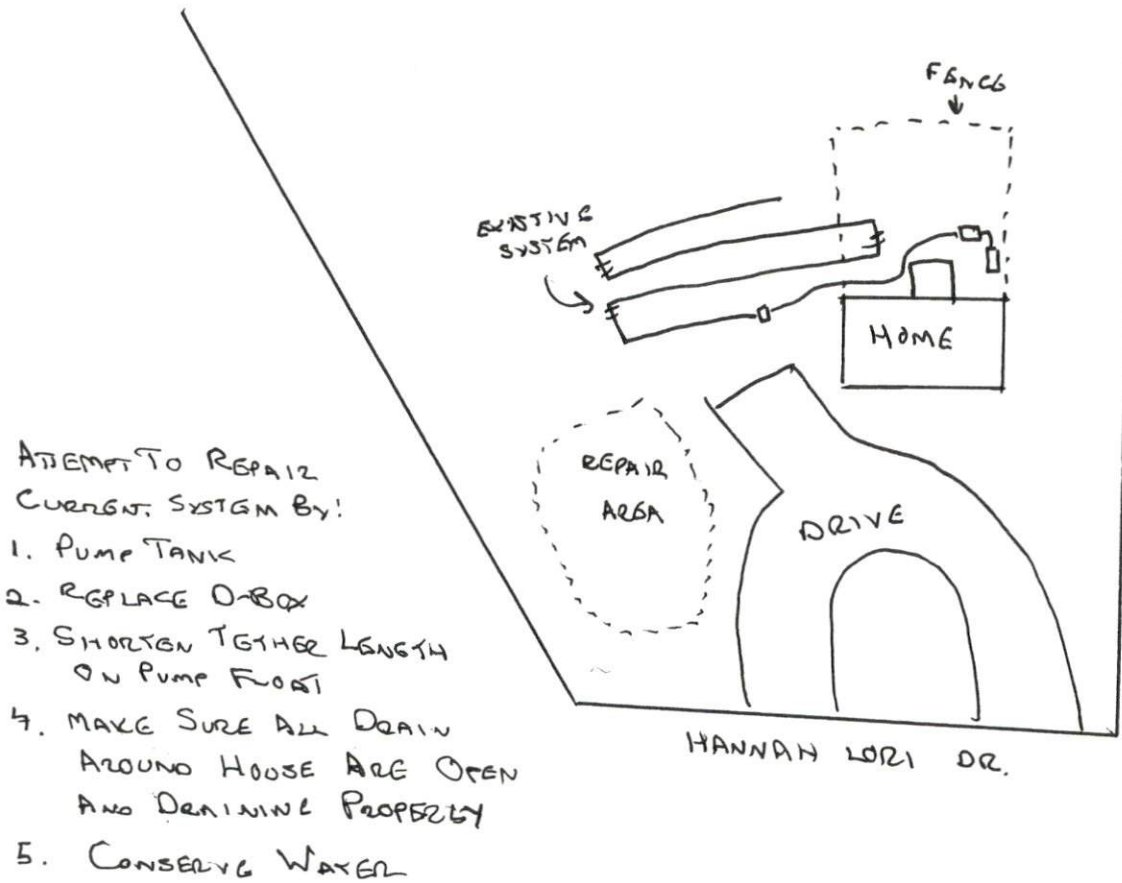 FENCE
EXISTIVE
SYSTEM
HOME
REPAIR
AREA
DRIVE
HANNAH LORI DR.
ATTEMPT TO REPAIR
CURRENT SYSTEM BY:
1. PUMP TANK
2. REPLACE D-BOX
3. SHORTEN TETHER LENGTH
ON PUMP FLOAT
4. MAKE SURE ALL DRAIN
AROUND HOUSE ARE OPEN
AND DRAINING PROPERLY
5. CONSERVE WATER